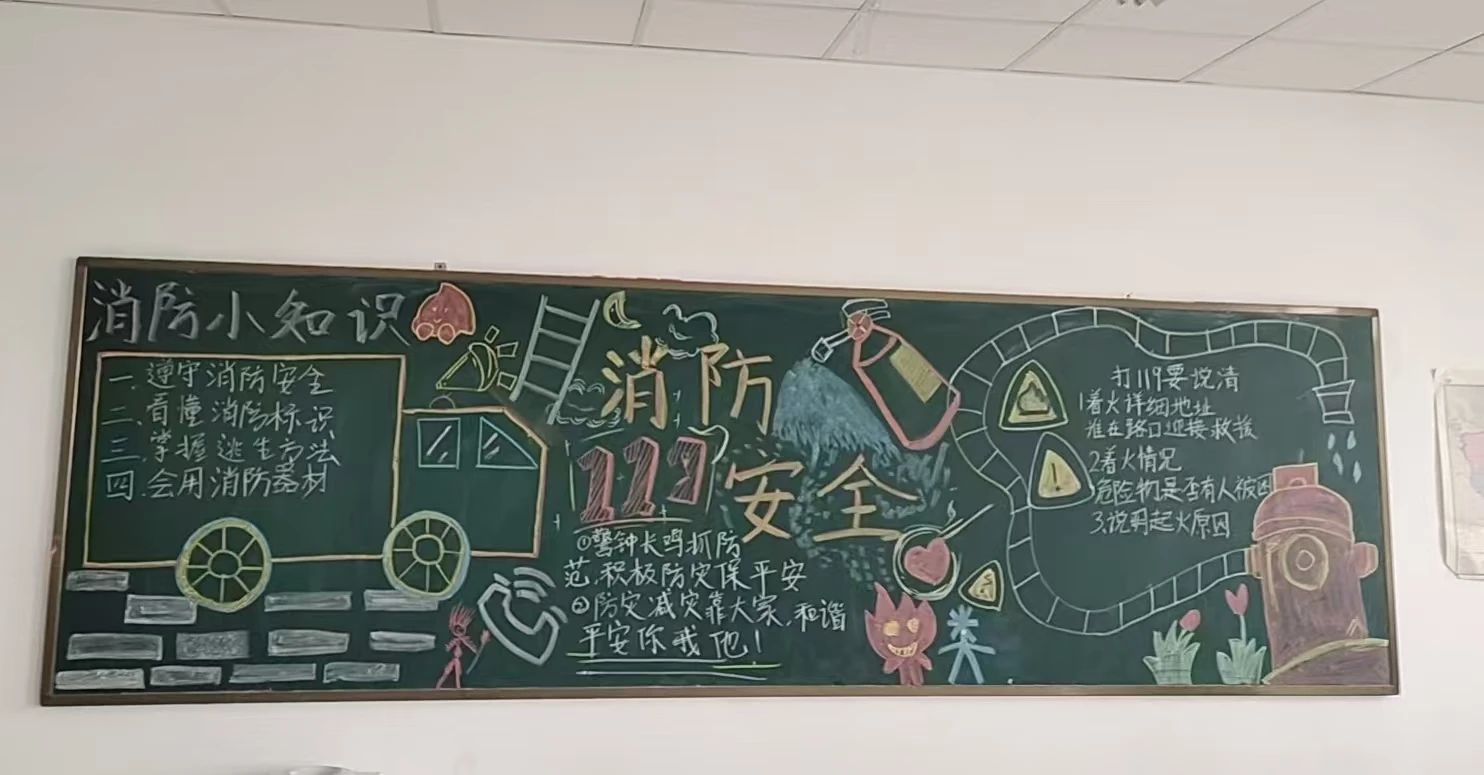 消防小知识
一.遵守消防安全
二.看懂消防标识
三.掌握逃生方法
四.会用消防器材
消防
119
安全
①警钟长鸣抓防
范,积极防灾保平安
②防灾减灾靠大家,和谐
平安你我他!
打119要说清
1着火详细地址
谁在路口迎接救援
2着火情况
危险物是否有人被困
3.说明起火原因